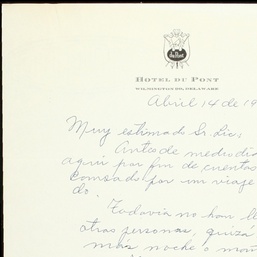 HOTEL DU PONT
WILMINGTON 99, DELAWARE
Abril 14 de 19
Muy estimado Sr. Lic:
Antes de mediodía
aquí por fin de cuentas
cansado por un viaje
do.
Todavía no han ll
otras personas, quizá
más noche o mañ